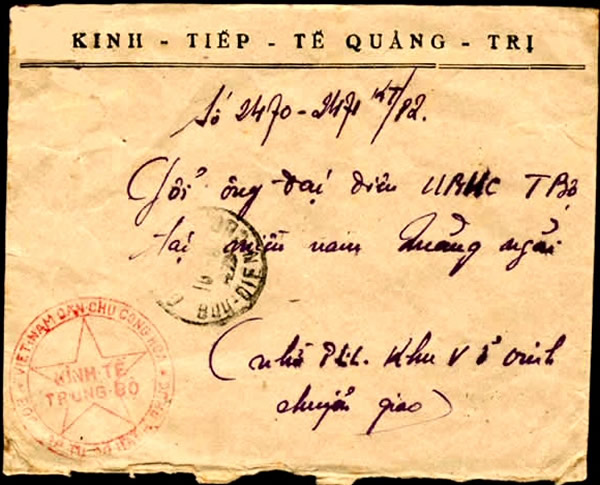 KINH - TIẾP - TẾ QUẢNG - TRỊ
Số 2470-2471 KT/82.
Gởi ông đại diện UBHC TBộ
tại miền nam Quảng ngãi
BƯU-ĐIỆN
VIET NAM DAN CHU CONG HOA
KINH-TẾ
TRUNG-BỘ
(nhờ Khu V ở
chuyển giao)